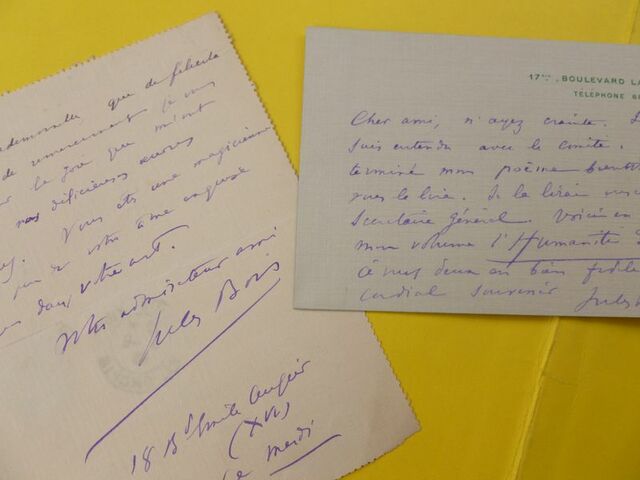 que de félicita
de remerciement je vous
la joie que m'ont
vos délicieuses
Vous êtes une magicienne
votre âme exquise
dans votre art.
Votre admirateur ami
Jules Bois
18 Bd Emile Augier
(XVI)
Ce mardi
17 BIS, BOULEVARD LA
TÉLÉPHONE
Cher ami, n'ayez crainte.
suis entendu avec le comité.
terminé mon poème bientôt
vous le lire. Je le lirai
Secrétaire Général. Voici
mon volume l'Humanité
à vous deux un bien fidèle
cordial souvenir Jules